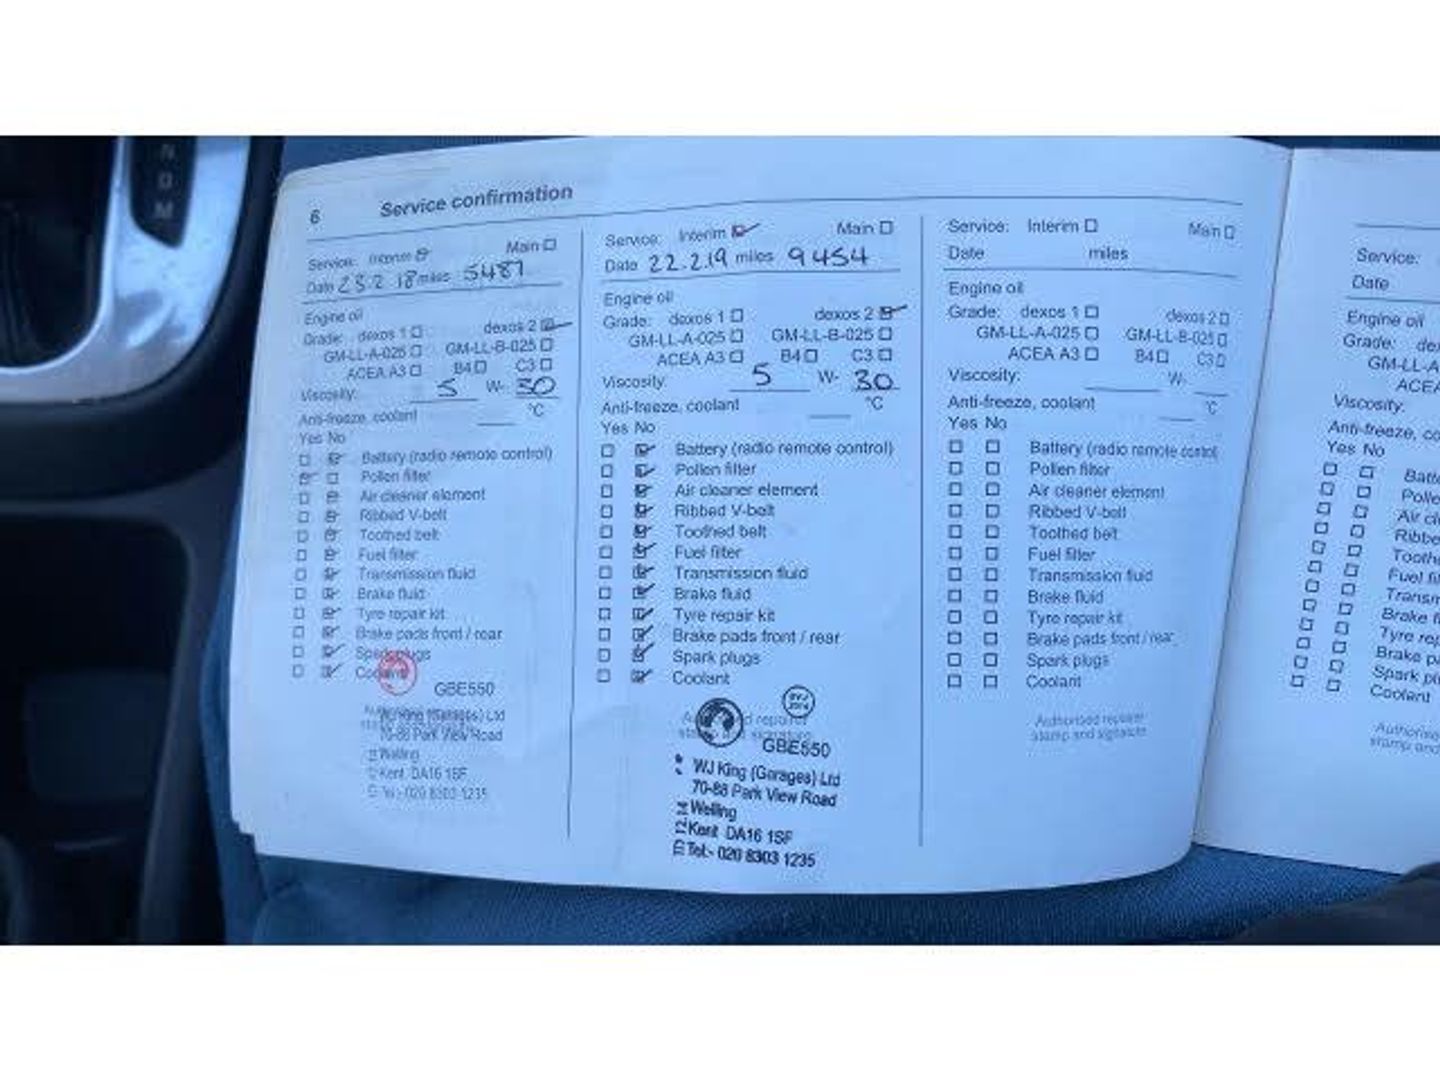 N
D
M
6 Service confirmation
Service: Interim Main
Date 23.2 18 miles 5487
Engine oil
Grade: dexos 1 dexos 2
GM-LL-A-025 GM-LL-B-025
ACEA A3 B4 C3
Viscosity: 5 W- 30
Anti-freeze, coolant °C
Yes No
Battery (radio remote control)
Pollen filter
Air cleaner element
Ribbed V-belt
Toothed belt
Fuel filter
Transmission fluid
Brake fluid
Tyre repair kit
Brake pads front / rear
Spark plugs
Coolant
GBE550
WJ King (Garages) Ltd
70-88 Park View Road
Welling
Kent DA16 1SF
Tel:- 020 8303 1235
Service: Interim Main
Date 22.2.19 miles 9454
Engine oil
Grade: dexos 1 dexos 2
GM-LL-A-025 GM-LL-B-025
ACEA A3 B4 C3
Viscosity: 5 W- 30
Anti-freeze, coolant °C
Yes No
Battery (radio remote control)
Pollen filter
Air cleaner element
Ribbed V-belt
Toothed belt
Fuel filter
Transmission fluid
Brake fluid
Tyre repair kit
Brake pads front / rear
Spark plugs
Coolant
repairer
signature
GBE550
WJ King (Garages) Ltd
70-88 Park View Road
Welling
Kent DA16 1SF
Tel:- 020 8303 1235
Service: Interim Main
Date miles
Engine oil
Grade: dexos 1 dexos 2
GM-LL-A-025 GM-LL-B-025
ACEA A3 B4 C3
Viscosity: W-
Anti-freeze, coolant °C
Yes No
Battery (radio remote control
Pollen filter
Air cleaner element
Ribbed V-belt
Toothed belt
Fuel filter
Transmission fluid
Brake fluid
Tyre repair kit
Brake pads front / rear
Spark plugs
Coolant
Authorised repairer
stamp and signature
Service:
Date
Engine oil
Grade: dex
GM-LL-A
ACEA
Viscosity:
Anti-freeze, co
Yes No
Batte
Polle
Air cl
Ribbe
Tooth
Fuel fi
Transm
Brake f
Tyre rep
Brake pa
Spark pl
Coolant
Authorise
stamp and